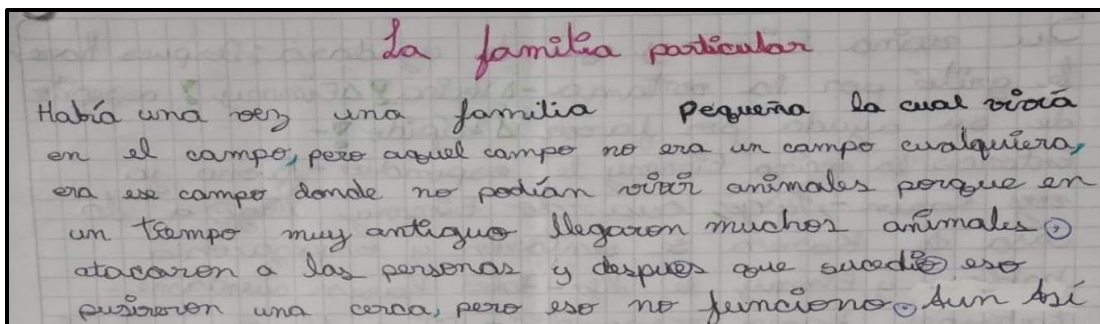 La familia particular
Había una vez una familia pequeña la cual vivía
en el campo, pero aquel campo no era un campo cualquiera,
era ese campo donde no podían vivir animales porque en
un tiempo muy antiguo llegaron muchos animales
atacaron a las personas y despues que sucedió eso
pusieron una cerca, pero eso no funciono. Aun Así